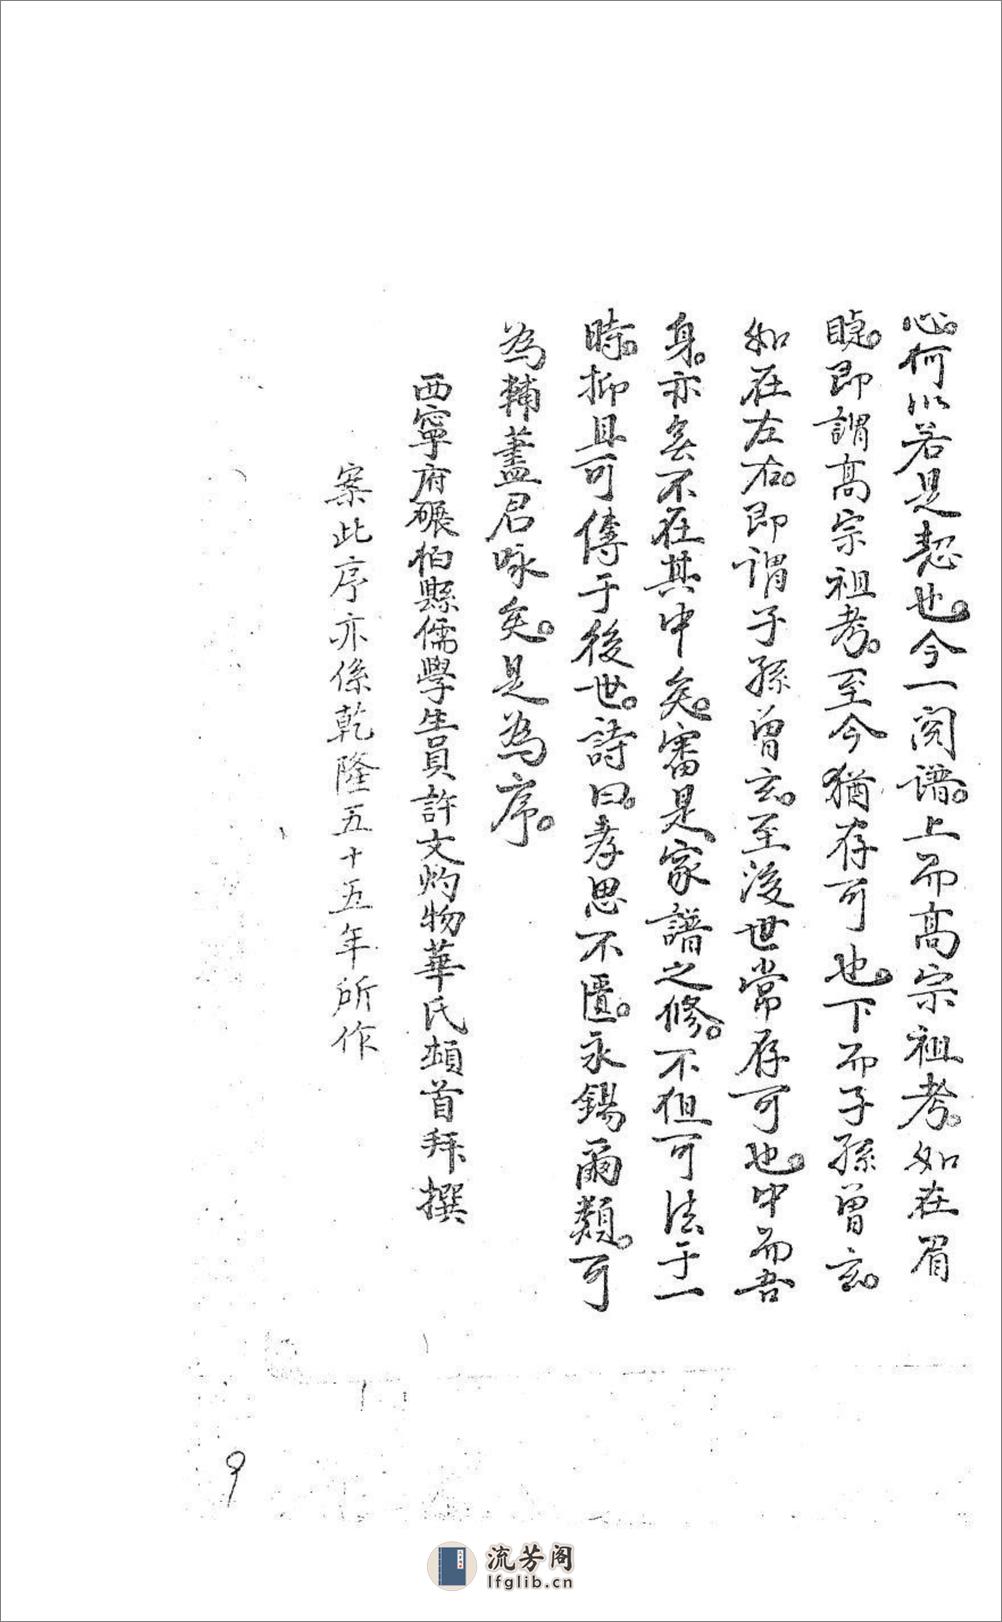 心。何以若是恝也。今一阅谱。上而高宗祖考。如在眉
睫。即謂高宗祖考。至今猶存可也。下而子孫曾玄。
如在左右。即谓子孫曾玄。至後世常存可也。中而吾
身。亦無不在其中矣。審是家譜之修。不但可法于一
時。抑且可傳于後世。詩曰。孝思不匱。永錫爾類。可
為輔蓋君咏矣。是為序。
西寧府碾伯縣儒學生員許文灼物華氏頓首拜撰
案此序亦係乾隆五十五年所作
9
流芳阁
lfglib.cn